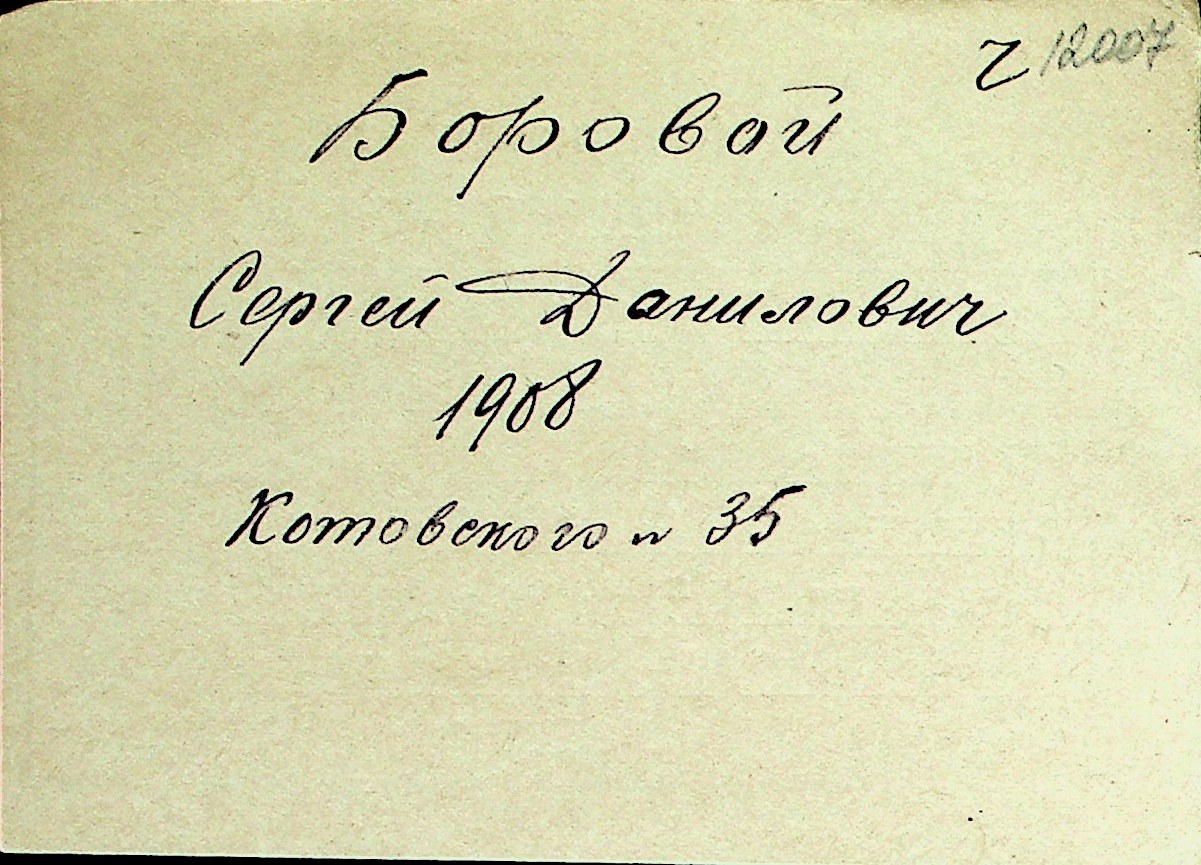 ч 12007
Боровой
Сергей Данилович
1908
Котовского н 35